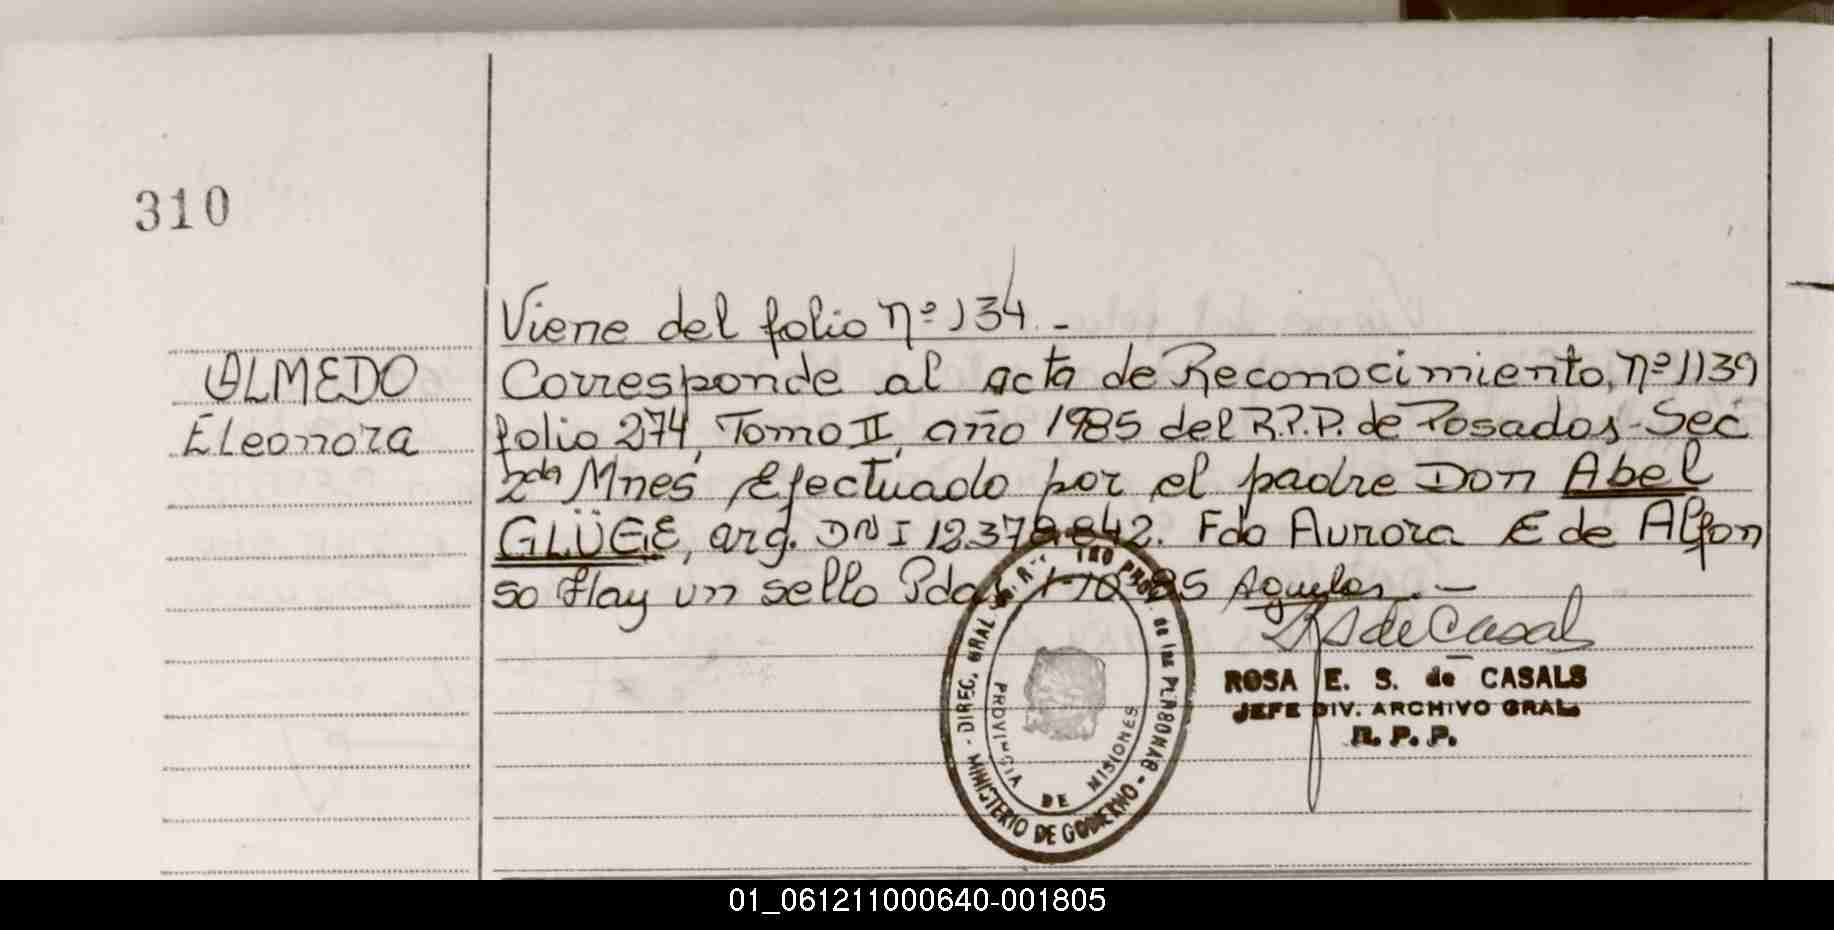 310
Viene del folio nº 134. -
OLMEDO
Eleonora
Corresponde al acta de Reconocimiento, nº 1139
folio 274, Tomo II, año 1985 del R.P.P. de Posadas - Sec
2da Mnes Efectuado por el padre Don Abel
GLÜGE, arg. DNI 12.378.842. Fdo Aurora E de Alfon
so Hay un sello Pdas 1-10-85
ROSA E. S. de CASALS
JEFE DIV. ARCHIVO GRAL
R. P. P.
MINISTERIO DE GOBIERNO - DIREC. GRAL de las PERSONAS -
PROVINCIA DE MISIONES
01_061211000640-001805